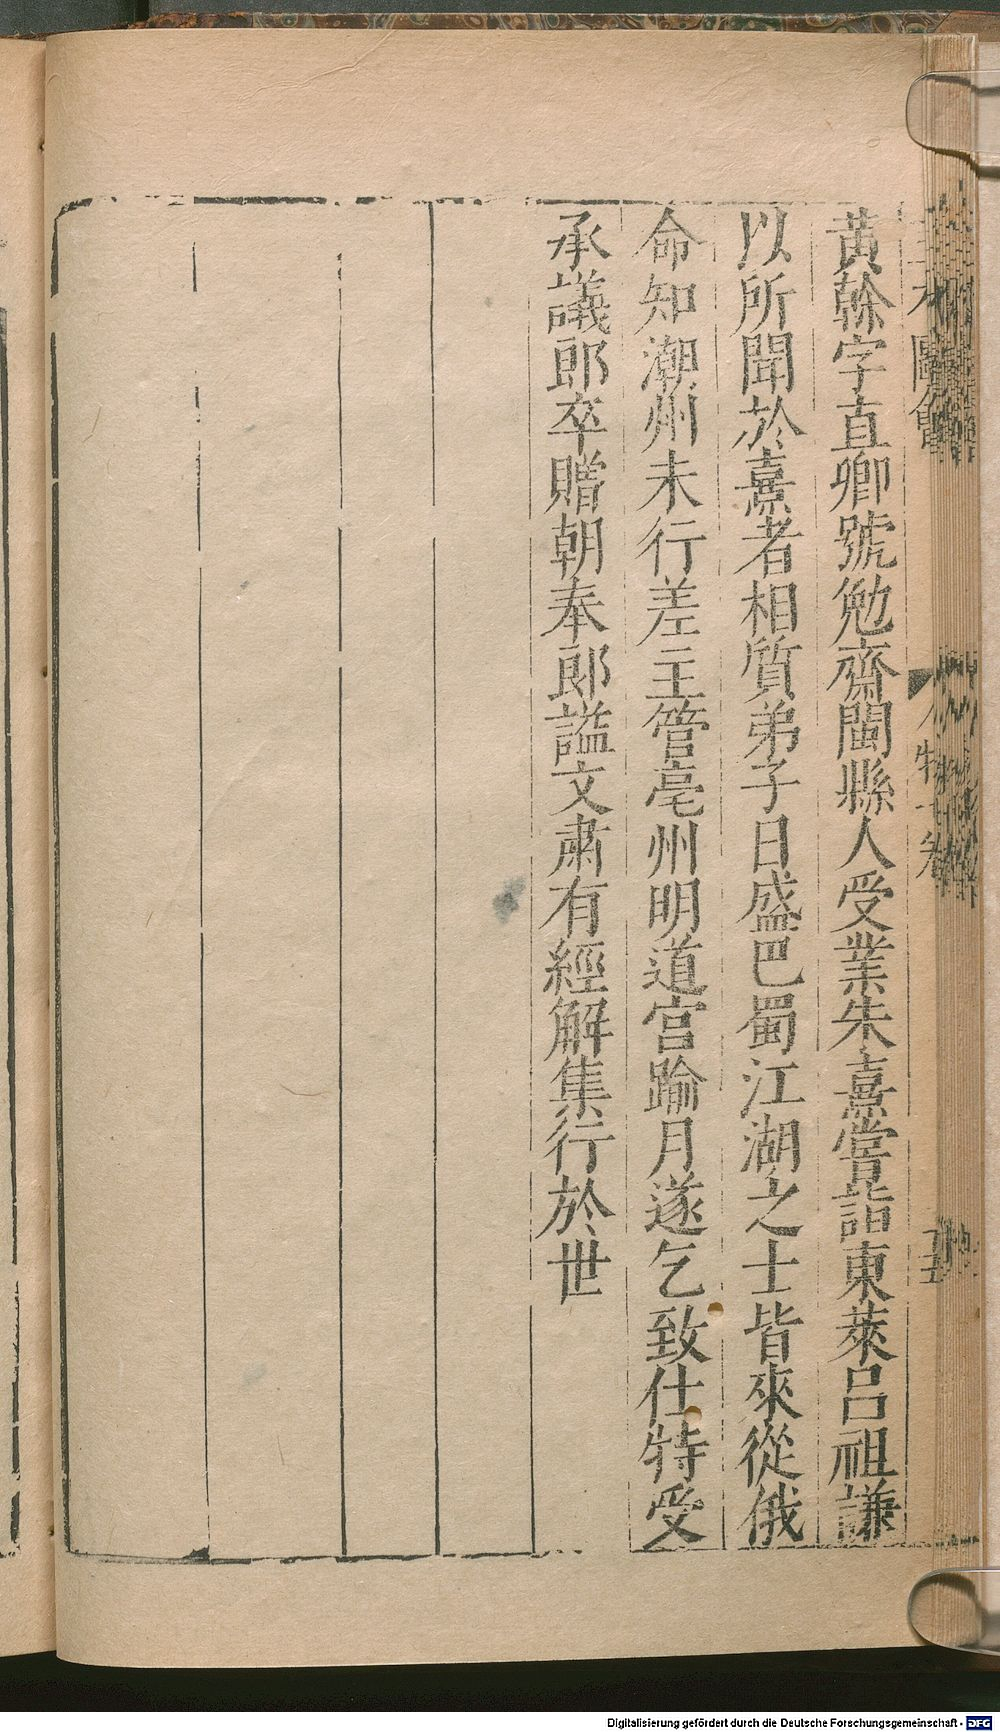 黄榦字直卿號勉齋閩縣人受業朱熹嘗詣東萊呂祖謙
以所聞於熹者相質弟子日盛巴蜀江湖之士皆來從俄
命知潮州未行差主管亳州明道宮踰月遂乞致仕特受
承議郎卒贈朝奉郎謚文肅有經解集行於世
Digitalisierung gefördert durch die Deutsche Forschungsgemeinschaft - DFG